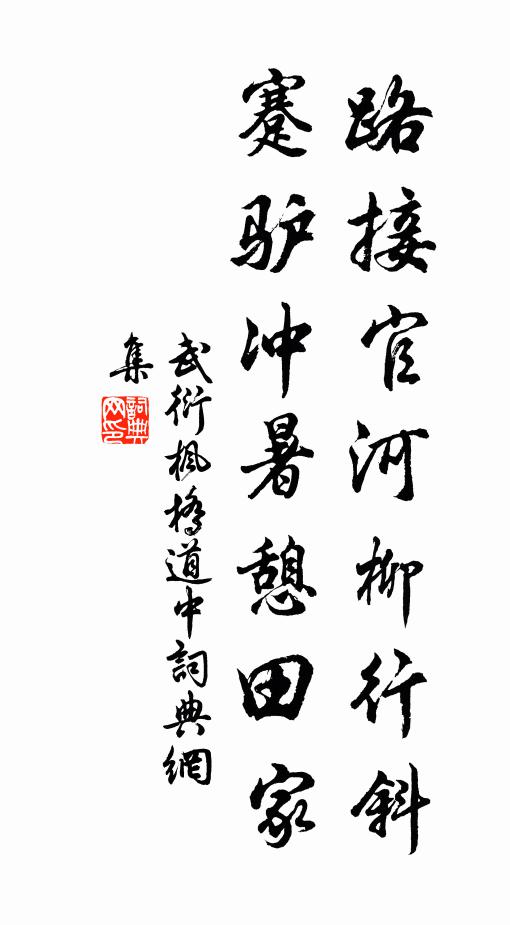 路接官河柳行斜
蹇驴冲暑憩田家
武衍枫橋道中詞典網
集
詞典
网印